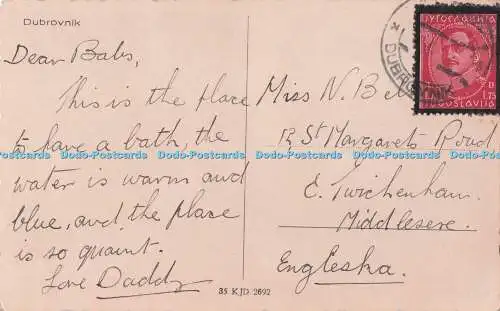 Dubrovnik
Dear Babs,
This is the place
to have a bath, the
water is warm and
blue, and the place
is so quaint.
Love Daddy
Miss N. Be
12 St Margarets Road,
E. Twickenham.
Middlesex.
Engleska.
35 KJD 2692
ЈУГОСЛАВИЈА
1.75
JUGOSLAVIJA
DUBROVNIK
Dodo-Postcards Dodo-Postcards Dodo-Postcards Dodo-Postcards